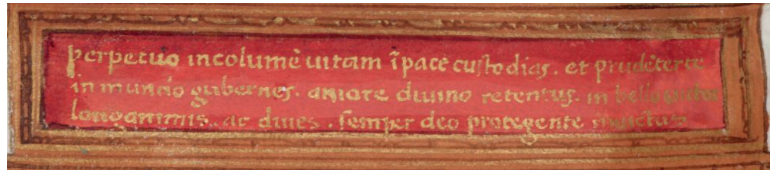 perpetuo incolumē uitam ī pace custodias. et prudēter te
in mundo gubernes. amore diuino retentus. in bello
longanimis. ac diues. semper deo protegente inuictus